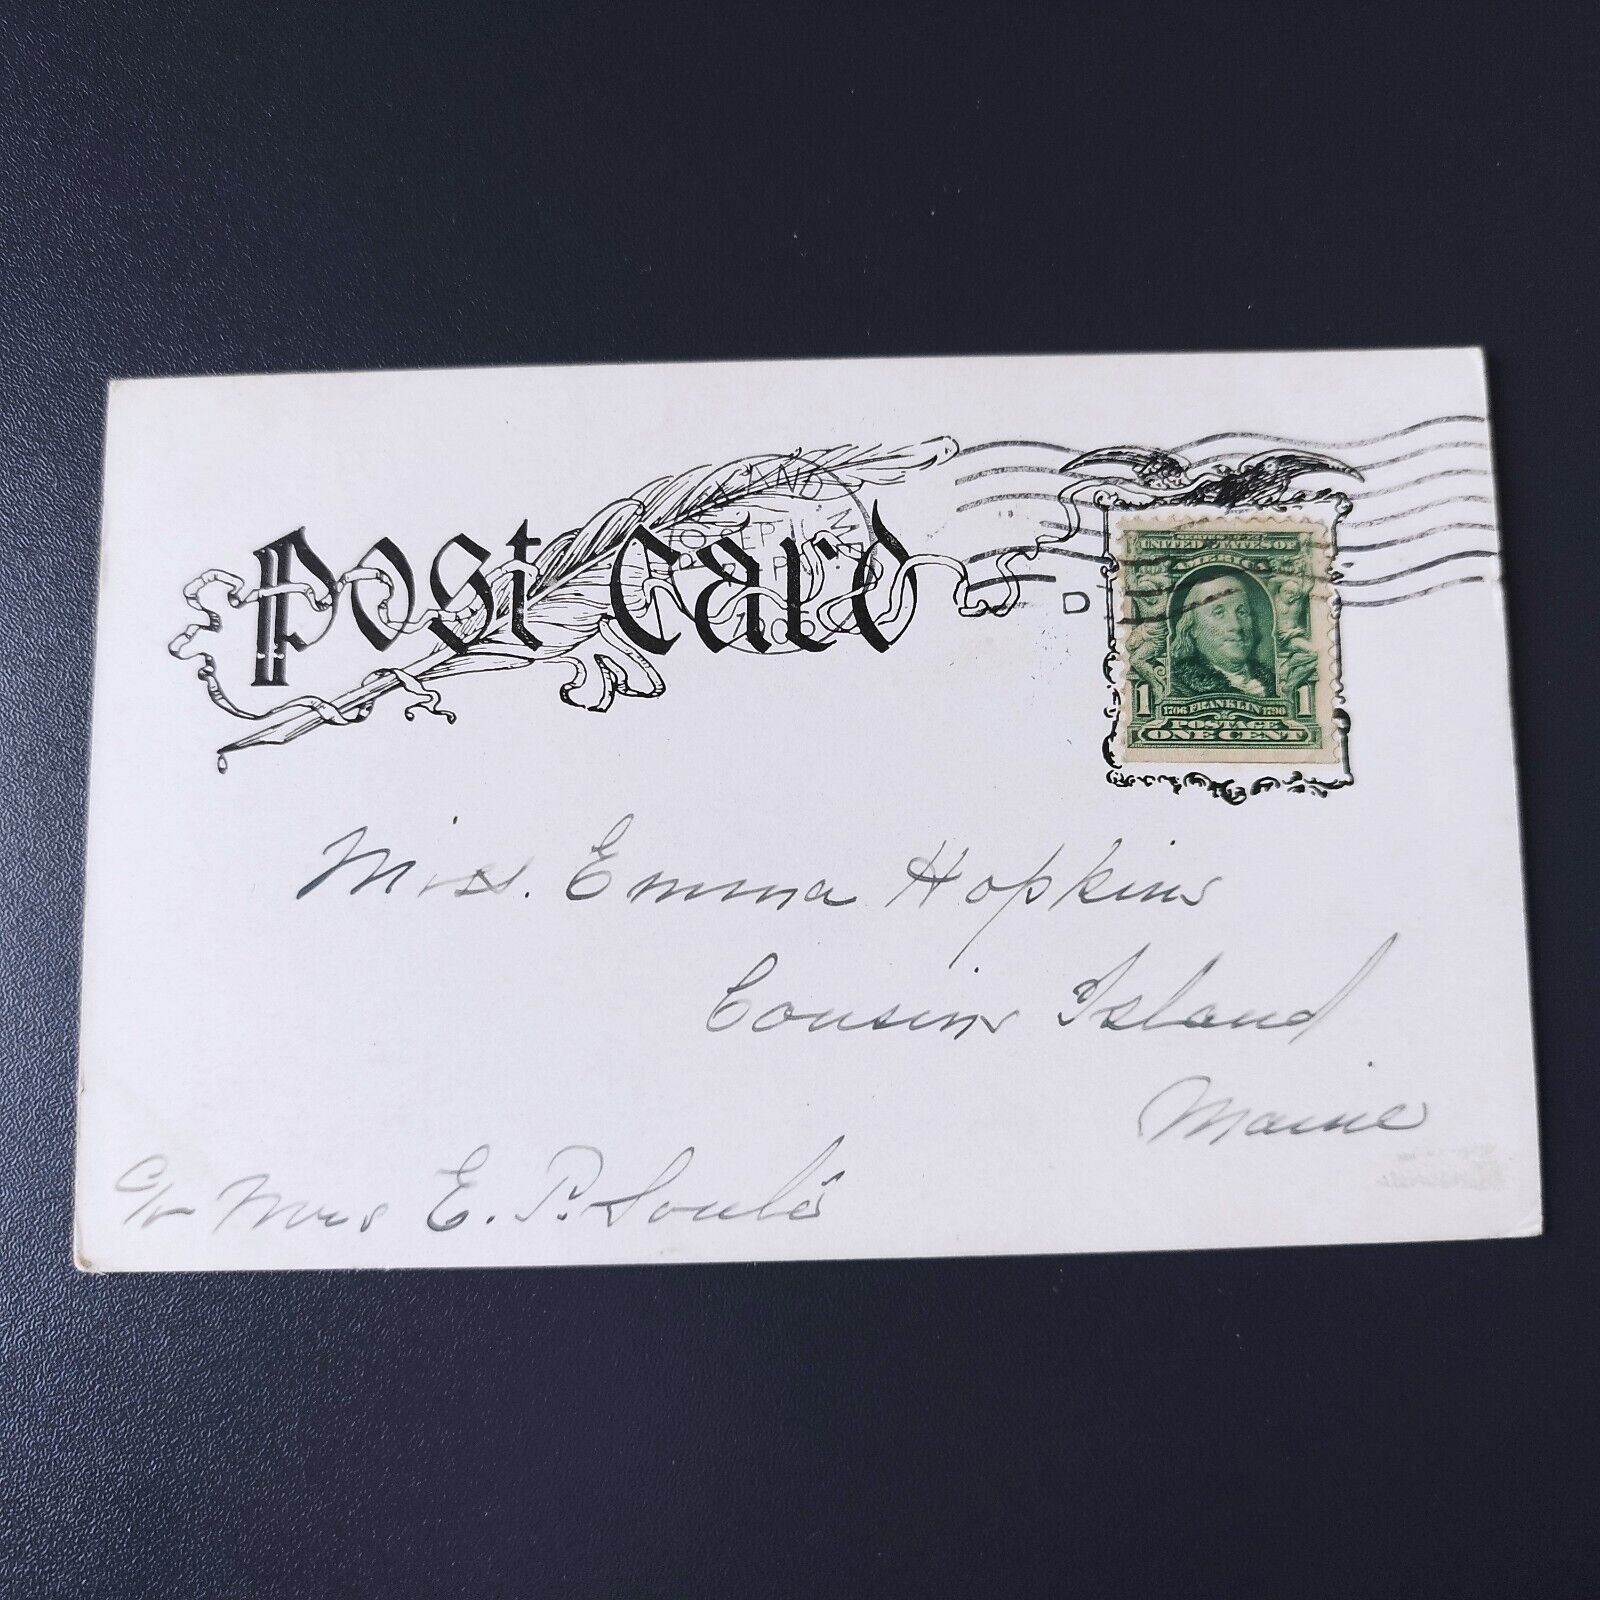 Post Card
SEP
SERIES 1902
UNITED STATES OF
AMERICA
1 1706 FRANKLIN 1790 1
POSTAGE
ONE CENT
D
Miss. Emma Hopkins
Cousins Island
Maine
c/o Mrs E. P. Soule's